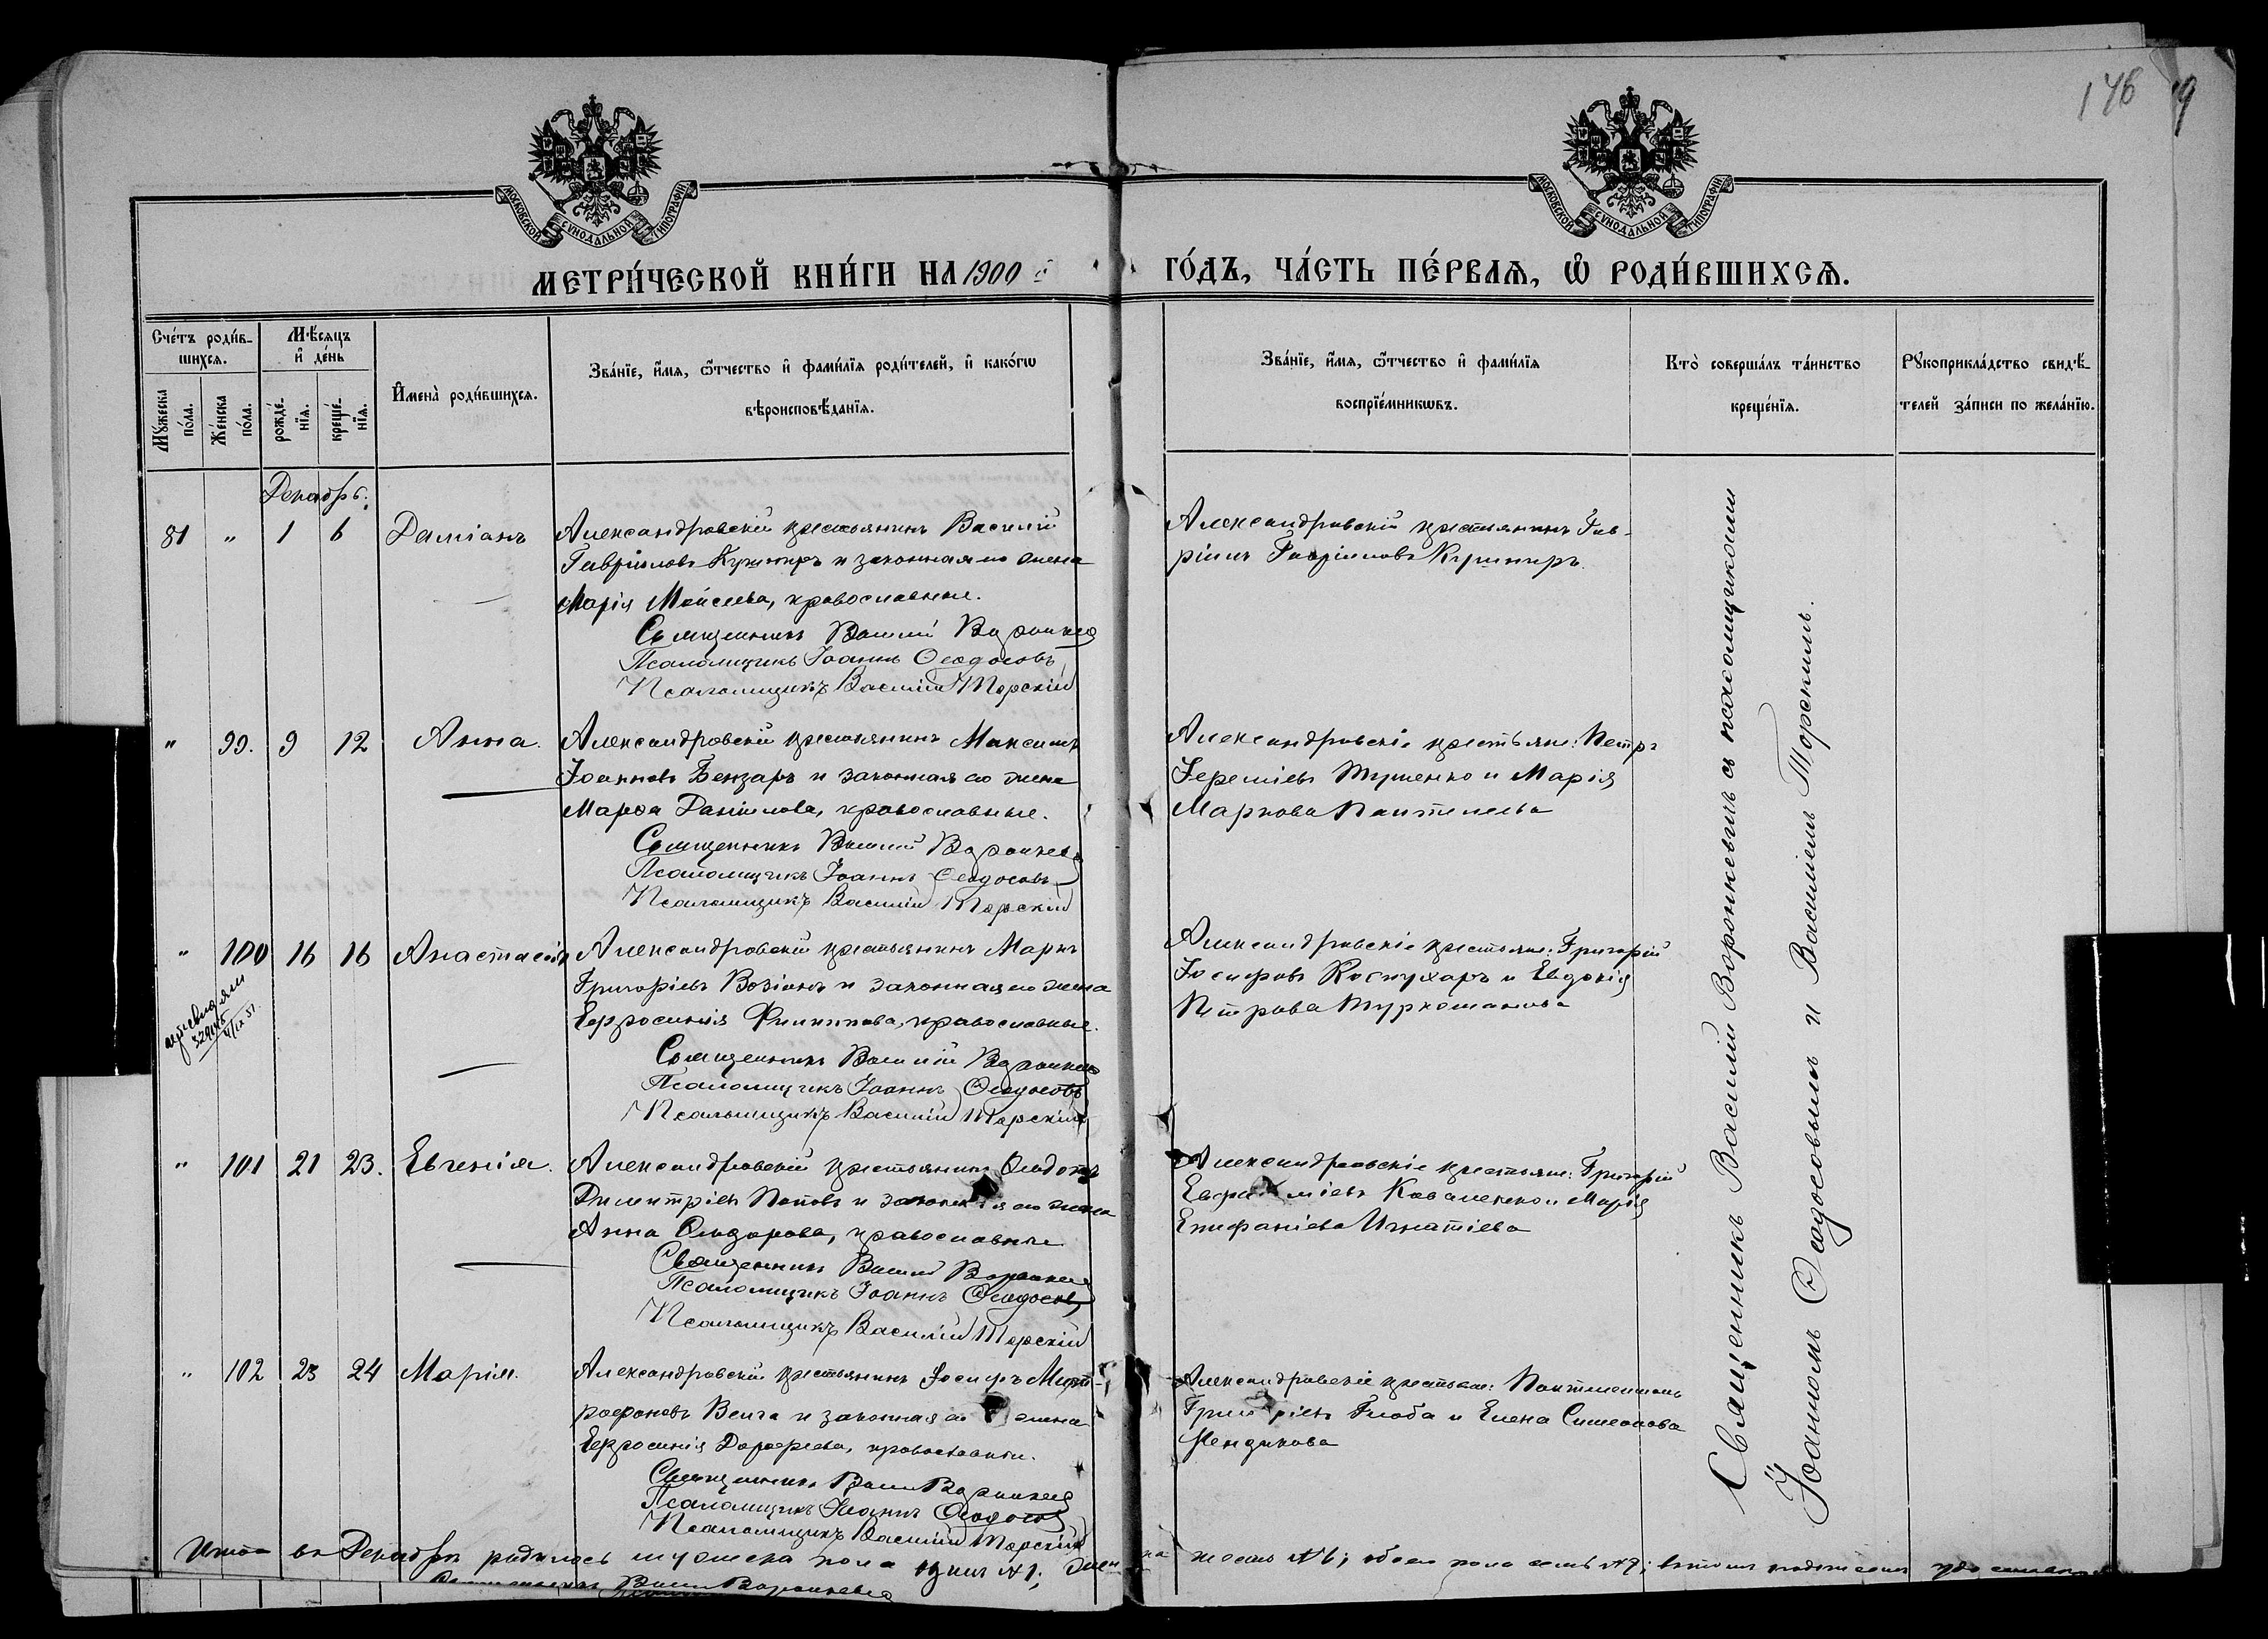 146
9
МОСКОВСКОЙ СѴНОДАЛЬНОЙ ТИПОГРАФІИ
МОСКОВСКОЙ СѴНОДАЛЬНОЙ ТИПОГРАФІИ
МЕТРИ́ЧЕСКОЙ КНИ́ГИ НА 1900 ГО́ДЪ, ЧА́СТЬ ПЕ́РВАѦ, Ѽ РОДИ́ВШИХСѦ.
Сче́тъ роди́в-
шихсѧ.
Мѣ́сѧцъ
и҆ де́нь
Мꙋ́жеска
по́ла.
Же́нска
по́ла.
рожде́-
нїѧ.
креще́-
нїѧ.
И҆мена̀ роди́вшихсѧ.
Зва́нїе, и҆́мѧ, ѻ҆́тчество и҆ фами́лїѧ роди́телей, и҆ како́гѡ
вѣроисповѣ́данїѧ.
Зва́нїе, и҆́мѧ, ѻ҆́тчество и҆ фами́лїѧ
воспрїе́мникѡвъ.
Кто̀ соверша́лъ та́инство
креще́нїѧ.
Рꙋкоприкла́дство свидѣ́-
телей за́писи по жела́нїю.
Декабрь.
81 " 1 6 Даміанъ Александровскій крестьянинъ Василій
Гавріиловъ Кушниръ и законная его жена
Марія Моисеева, православные.
Священникъ Василій Воронкевъ
Псаломщикъ Іоаннъ Ѳеодосовъ
Псаломщикъ Василій Торскій
Александровскій крестьянинъ Гав-
ріилъ Гавріиловъ Кушниръ.
" 99. 9 12 Анна. Александровскій крестьянинъ Максимъ
Іоанновъ Бензаръ и законная его жена
Марѳа Даніилова, православные.
Священникъ Василій Воронкевъ
Псаломщикъ Іоаннъ Ѳеодосовъ
Псаломщикъ Василій Торскій
Александровскіе крестьяне: Петръ
Іереміевъ Тушенко и Марія
Маркова Пантелеева
" 100 16 16 Анастасія Александровскій крестьянинъ Маркъ
Григоріевъ Возіанъ и законная его жена
Евфросинія Филиппова, православные.
Священникъ Василій Воронкевъ
Псаломщикъ Іоаннъ Ѳеодосовъ
Псаломщикъ Василій Торскій
Александровскіе крестьяне: Григорій
Іосифовъ Костухаръ и Евдокія
Петрова Туркоманова
" 101 21 23. Евгенія. Александровскій крестьянинъ Ѳеодотъ
Димитріевъ Поповъ и законная его жена
Анна Ѳеодорова, православные
Священникъ Василій Воронкевъ
Псаломщикъ Іоаннъ Ѳеодосовъ
Псаломщикъ Василій Торскій
Александровскіе крестьяне: Григорій
Коваленко и Марія
Епифаніева Игнатіева
" 102 23 24 Марія. Александровскій крестьянинъ Іосифъ Мит-
рофановъ Велча и законная его жена
Евфросинія Дороѳеева, православные.
Священникъ Василій Воронкевъ
Псаломщикъ Іоаннъ Ѳеодосовъ
Псаломщикъ Василій Торскій
Александровскіе крестьяне: Пантелеимонъ
Григоріевъ Глоба и Елена Симеонова
Мендикова
Священникъ Василій Воронкевичъ съ псаломщиками
Іоанномъ Ѳеодосовымъ и Василіемъ Торскимъ.
Итого въ Декабрѣ родилось мужеска пола одинъ №1; женска шесть №6; обоего пола семь №7;
Священникъ Василій Воронкевъ